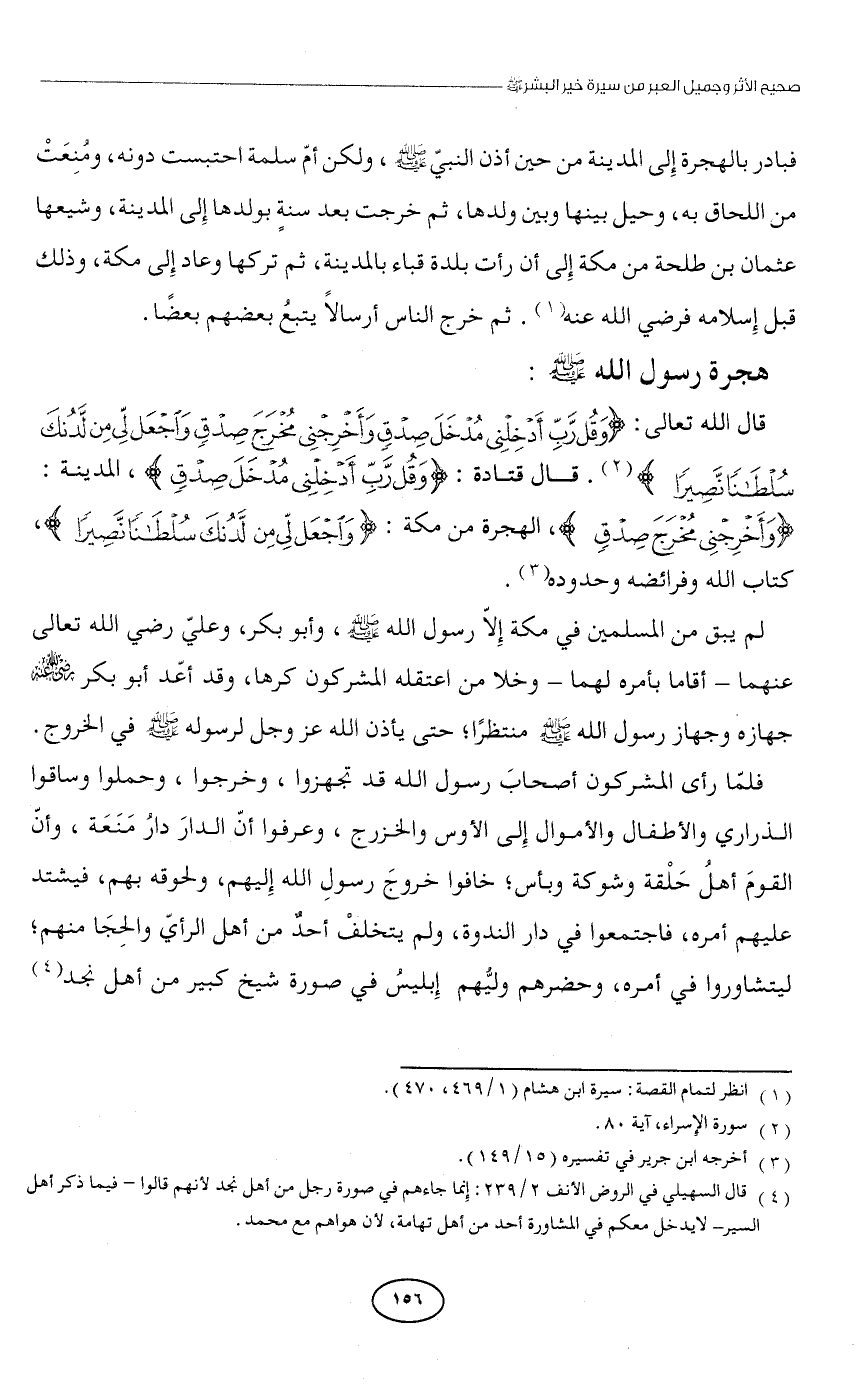 صحيح الأثر وجميل العبر من سيرة خير البشر ﷺ
فبادر بالهجرة إلى المدينة من حين أذن النبيّ ﷺ ، ولكن أمّ سلمة احتبست دونه، ومُنِعَتْ
من اللحاق به، وحيل بينها وبين ولدها، ثم خرجت بعد سنةٍ بولدها إلى المدينة، وشيعها
عثمان بن طلحة من مكة إلى أن رأت بلدة قباء بالمدينة، ثم تركها وعاد إلى مكة، وذلك
قبل إسلامه فرضي الله عنه(١) . ثم خرج الناس أرسالاً يتبعُ بعضهم بعضًا.
هجرة رسول الله ﷺ :
قال الله تعالى: ﴿وَقُل رَّبِّ أَدْخِلْنِي مُدْخَلَ صِدْقٍ وَأَخْرِجْنِي مُخْرَجَ صِدْقٍ وَاجْعَل لِّي مِن لَّدُنكَ
سُلْطَٰنًا نَّصِيرًا ﴾(٢) . قــال قتادة : ﴿وَقُل رَّبِّ أَدْخِلْنِي مُدْخَلَ صِدْقٍ ﴾ ، المدينـة :
﴿وَأَخْرِجْنِي مُخْرَجَ صِدْقٍ ﴾، الهجرة من مكة : ﴿ وَاجْعَل لِّي مِن لَّدُنكَ سُلْطَٰنًا نَّصِيرًا ﴾،
كتاب الله وفرائضه وحدوده(٣) .
لم يبق من المسلمين في مكة إلاّ رسول الله ﷺ ، وأبو بكر، وعليّ رضي الله تعالى
عنهما – أقاما بأمره لهما – وخلا من اعتقله المشركون كرها، وقد أعّد أبو بكر رضي الله عنه
جهازه وجهاز رسول الله ﷺ منتظرًا؛ حتى يأذن الله عز وجل لرسوله ﷺ في الخروج.
فلمّا رأى المشركون أصحابَ رسول الله قد تجهزوا ، وخرجوا ، وحملوا وساقوا
الذراري والأطفال والأموال إلى الأوس والخزرج ، وعرفوا أنّ الدارَ دارُ مَنَعَة ، وأنّ
القومَ أهلُ حَلْقة وشوكة وبأس؛ خافوا خروجَ رسولِ الله إليهم، ولحوقه بهم، فيشتد
عليهم أمره، فاجتمعوا في دار الندوة، ولم يتخلفْ أحدٌ من أهل الرأيّ والحِجَا منهم؛
ليتشاوروا في أمره، وحضرهم وليُّهم إبليسُ في صورة شيخ كبير من أهل نجد(٤)
(١) انظر لتمام القصة: سيرة ابن هشام (١/ ٤٦٩، ٤٧٠).
(٢) سورة الإسراء، آية ٨٠.
(٣) أخرجه ابن جرير في تفسيره (١٥/ ١٤٩).
(٤) قال السهيلي في الروض الأنف ٢/ ٢٣٩: إنما جاءهم في صورة رجل من أهل نجد لأنهم قالوا – فيما ذكر أهل
السير– لايدخل معكم في المشاورة أحد من أهل تهامة، لأن هواهم مع محمد .
١٥٦